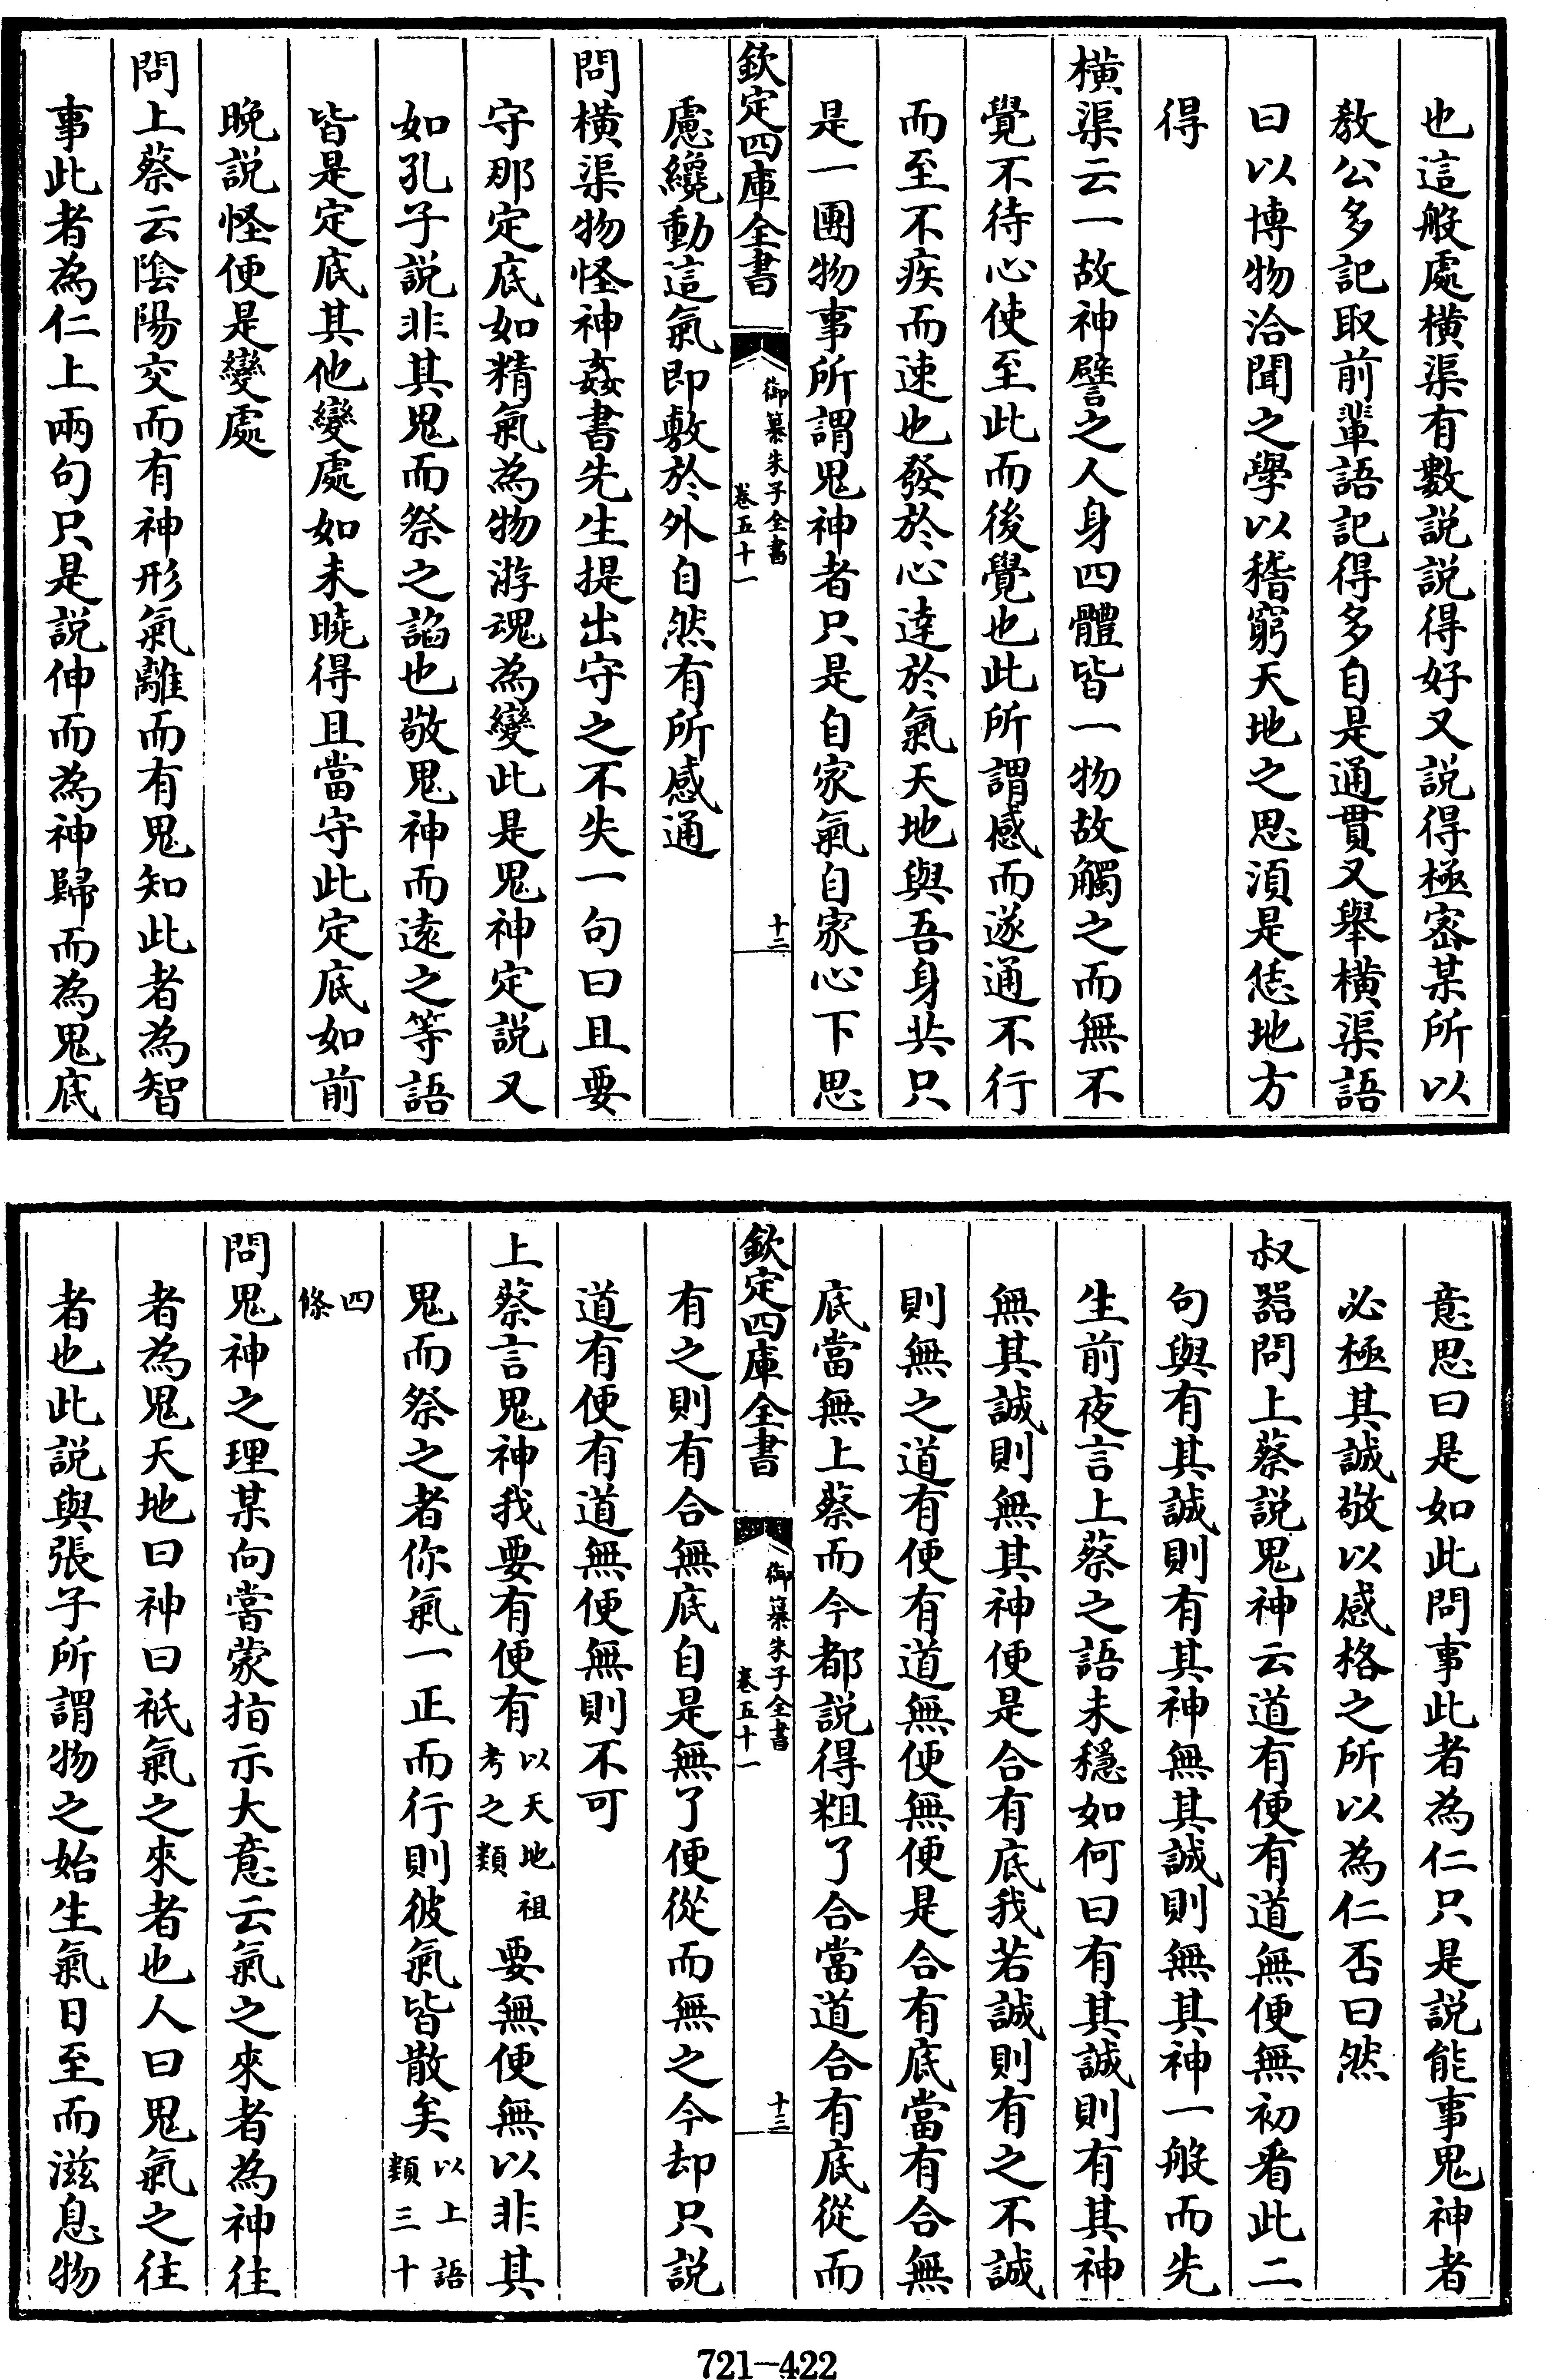 也這般處橫渠有數説説得好又説得極密某所以
教公多記取前輩語記得多自是通貫又舉橫渠語
曰以博物洽聞之學以稽窮天地之思須是恁地方
得
橫渠云一故神譬之人身四體皆一物故觸之而無不
覺不待心使至此而後覺也此所謂感而遂通不行
而至不疾而速也發於心達於氣天地與吾身共只
是一團物事所謂鬼神者只是自家氣自家心下思
欽定四庫全書
御纂朱子全書
卷五十一
十二
慮纔動這氣即敷於外自然有所感通
問橫渠物怪神姦書先生提出守之不失一句曰且要
守那定底如精氣為物游魂為變此是鬼神定説又
如孔子説非其鬼而祭之諂也敬鬼神而遠之等語
皆是定底其他變處如未曉得且當守此定底如前
晚説怪便是變處
問上蔡云陰陽交而有神形氣離而有鬼知此者為智
事此者為仁上兩句只是説伸而為神歸而為鬼底
意思曰是如此問事此者為仁只是説能事鬼神者
必極其誠敬以感格之所以為仁否曰然
叔器問上蔡説鬼神云道有便有道無便無初看此二
句與有其誠則有其神無其誠則無其神一般而先
生前夜言上蔡之語未穩如何曰有其誠則有其神
無其誠則無其神便是合有底我若誠則有之不誠
則無之道有便有道無便無便是合有底當有合無
底當無上蔡而今都説得粗了合當道合有底從而
欽定四庫全書
御纂朱子全書
卷五十一
十三
有之則有合無底自是無了便從而無之今却只説
道有便有道無便無則不可
上蔡言鬼神我要有便有以天地祖考之類要無便無以非其
鬼而祭之者你氣一正而行則彼氣皆散矣以上語類三十
四條
問鬼神之理某向嘗蒙指示大意云氣之來者為神往
者為鬼天地曰神曰祇氣之來者也人曰鬼氣之往
者也此説與張子所謂物之始生氣日至而滋息物
721—422